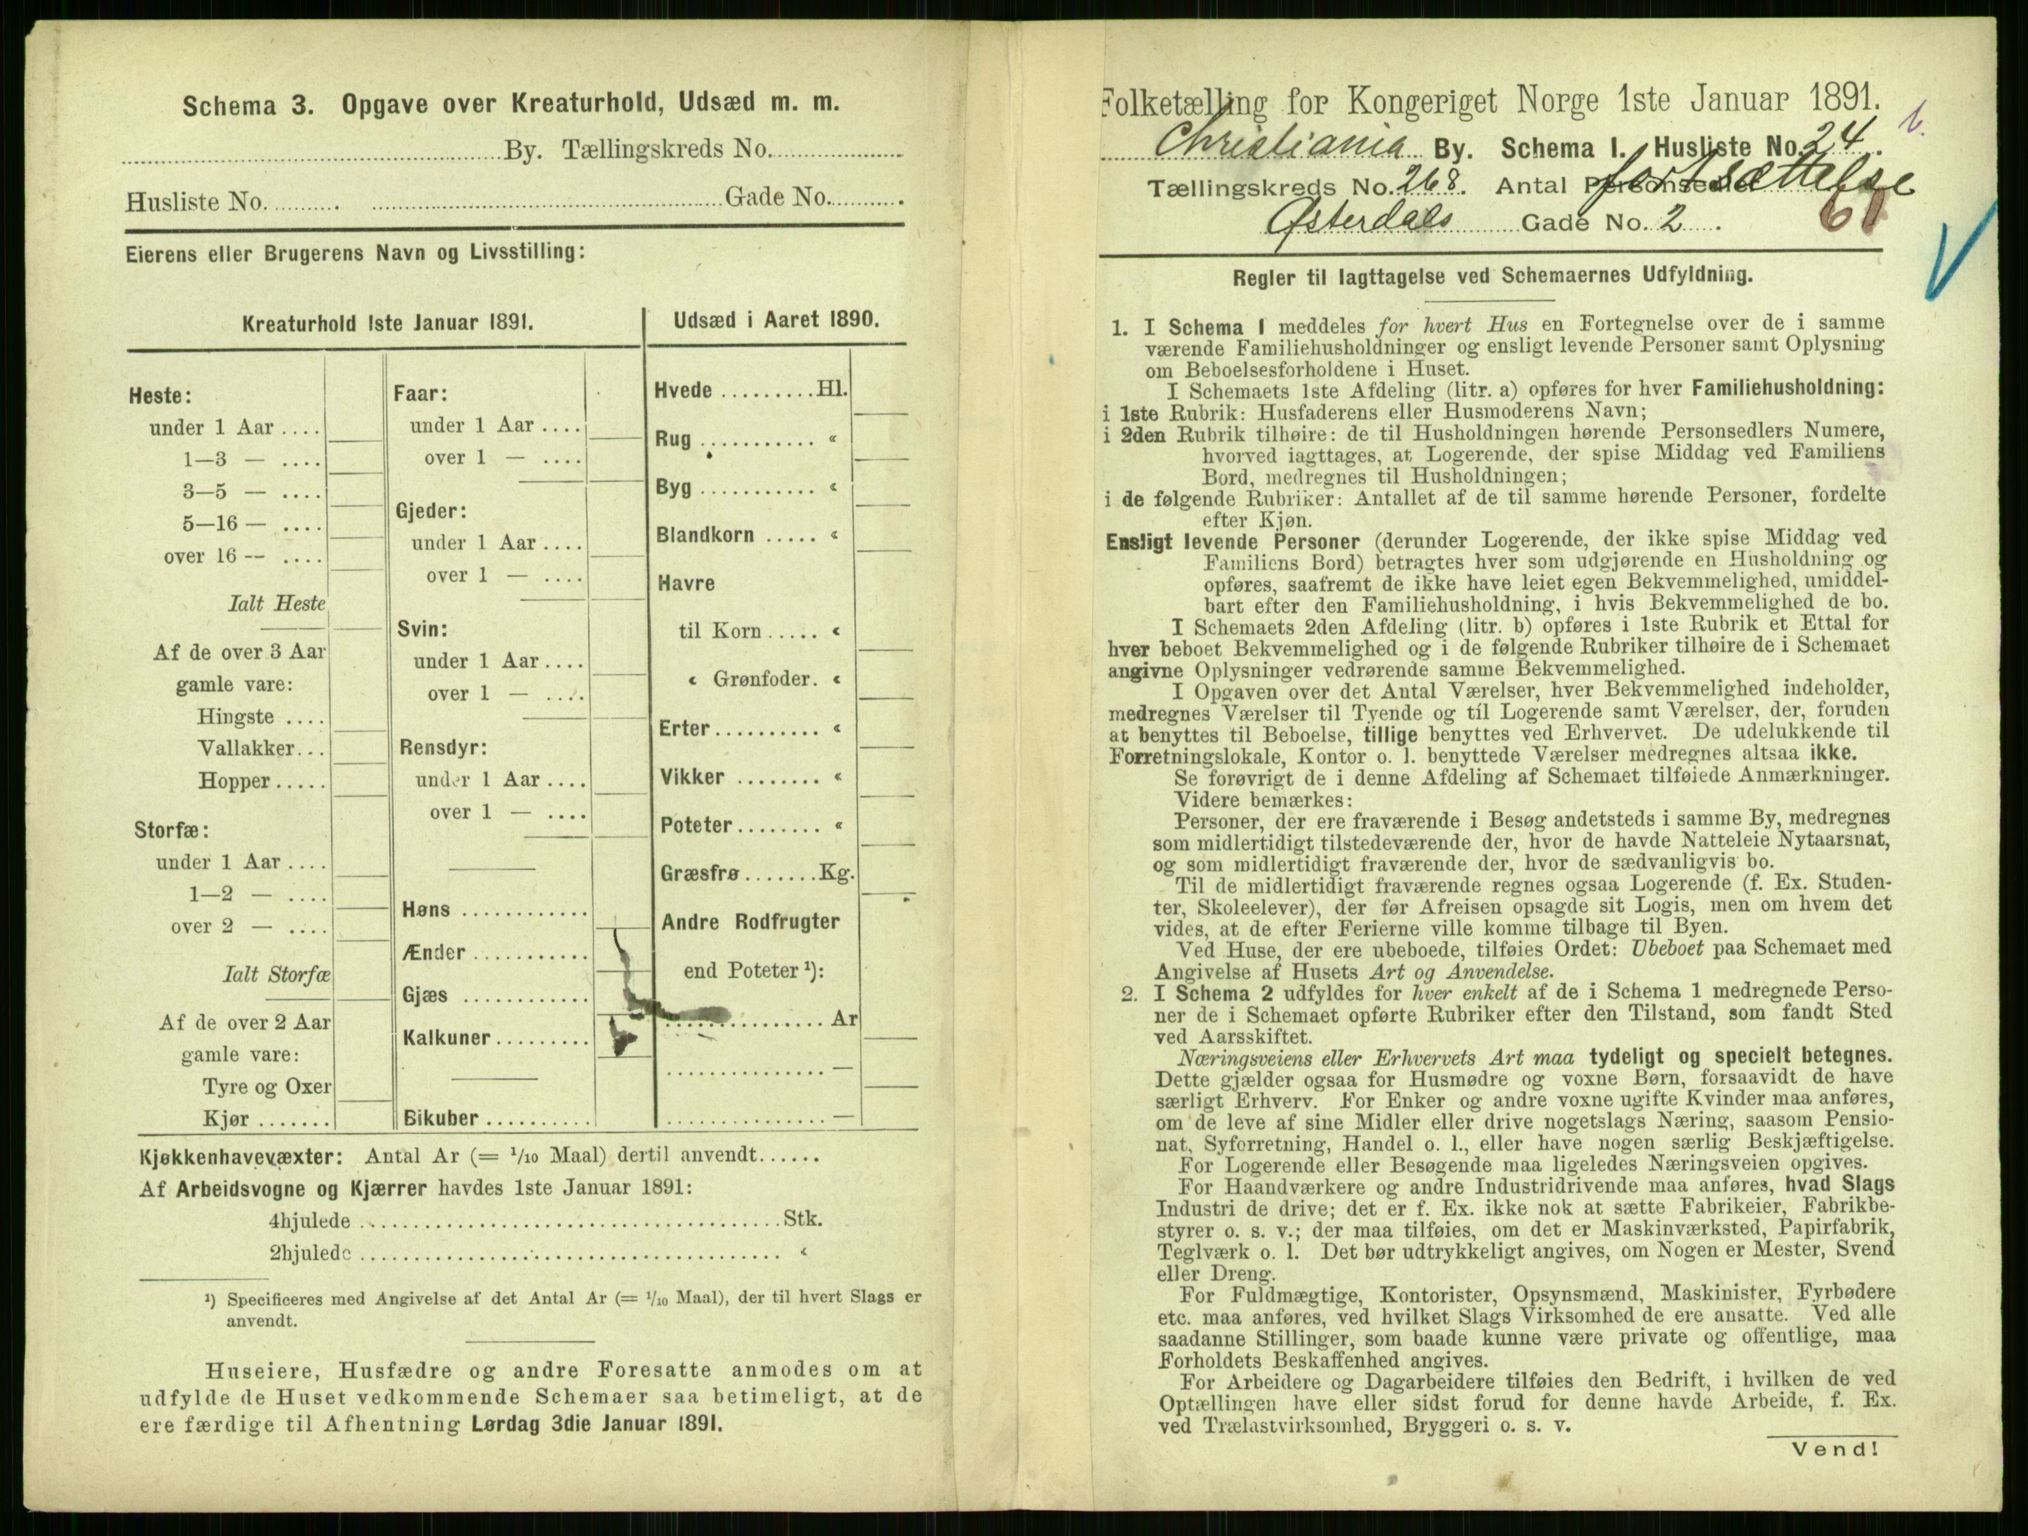 Schema 3. Opgave over Kreaturhold, Udsæd m. m.
By. Tællingskreds No.
Husliste No. Gade No.
Eierens eller Brugerens Navn og Livsstilling:
Kreaturhold 1ste Januar 1891.
Heste:
under 1 Aar
1—3 —
3—5 —
5—16 —
over 16 —
Ialt Heste
Af de over 3 Aar
gamle vare:
Hingste
Vallakker
Hopper
Storfæ:
under 1 Aar
1—2 —
over 2 —
Ialt Storfæ
Af de over 2 Aar
gamle vare:
Tyre og Oxer
Kjør
Faar:
under 1 Aar
over 1 —
Gjeder:
under 1 Aar
over 1 —
Svin:
under 1 Aar
over 1 —
Rensdyr:
under 1 Aar
over 1 —
Høns
Ænder
Gjæs
Kalkuner
Bikuber
Udsæd i Aaret 1890.
Hvede Hl.
Rug «
Byg «
Blandkorn «
Havre
til Korn «
« Grønfoder. «
Erter «
Vikker «
Poteter «
Græsfrø Kg.
Andre Rodfrugter
end Poteter ¹):
Ar
—
—
Kjøkkenhavevæxter: Antal Ar (= 1/10 Maal) dertil anvendt
Af Arbeidsvogne og Kjærrer havdes 1ste Januar 1891:
4hjulede Stk.
2hjulede «
¹) Specificeres med Angivelse af det Antal Ar (= 1/10 Maal), der til hvert Slags er
anvendt.
Huseiere, Husfædre og andre Foresatte anmodes om at
udfylde de Huset vedkommende Schemaer saa betimeligt, at de
ere færdige til Afhentning Lørdag 3die Januar 1891.
Folketælling for Kongeriget Norge 1ste Januar 1891.
Christiania By. Schema I. Husliste No. 24
Tællingskreds No. 268. Antal Personsedler fortsættelse
Østerdals Gade No. 2
Regler til Iagttagelse ved Schemaernes Udfyldning.
1. I Schema I meddeles for hvert Hus en Fortegnelse over de i samme
værende Familiehusholdninger og ensligt levende Personer samt Oplysning
om Beboelsesforholdene i Huset.
I Schemaets 1ste Afdeling (litr. a) opføres for hver Familiehusholdning:
i 1ste Rubrik: Husfaderens eller Husmoderens Navn;
i 2den Rubrik tilhøire: de til Husholdningen hørende Personsedlers Numere,
hvorved iagttages, at Logerende, der spise Middag ved Familiens
Bord, medregnes til Husholdningen;
i de følgende Rubriker: Antallet af de til samme hørende Personer, fordelte
efter Kjøn.
Ensligt levende Personer (derunder Logerende, der ikke spise Middag ved
Familiens Bord) betragtes hver som udgjørende en Husholdning og
opføres, saafremt de ikke have leiet egen Bekvemmelighed, umiddel-
bart efter den Familiehusholdning, i hvis Bekvemmelighed de bo.
I Schemaets 2den Afdeling (litr. b) opføres i 1ste Rubrik et Ettal for
hver beboet Bekvemmelighed og i de følgende Rubriker tilhøire de i Schemaet
angivne Oplysninger vedrørende samme Bekvemmelighed.
I Opgaven over det Antal Værelser, hver Bekvemmelighed indeholder,
medregnes Værelser til Tyende og til Logerende samt Værelser, der, foruden
at benyttes til Beboelse, tillige benyttes ved Erhvervet. De udelukkende til
Forretningslokale, Kontor o. l. benyttede Værelser medregnes altsaa ikke.
Se forøvrigt de i denne Afdeling af Schemaet tilføiede Anmærkninger.
Videre bemærkes:
Personer, der ere fraværende i Besøg andetsteds i samme By, medregnes
som midlertidigt tilstedeværende der, hvor de havde Natteleie Nytaarsnat,
og som midlertidigt fraværende der, hvor de sædvanligvis bo.
Til de midlertidigt fraværende regnes ogsaa Logerende (f. Ex. Studen-
ter, Skoleelever), der før Afreisen opsagde sit Logis, men om hvem det
vides, at de efter Ferierne ville komme tilbage til Byen.
Ved Huse, der ere ubeboede, tilføies Ordet: Ubeboet paa Schemaet med
Angivelse af Husets Art og Anvendelse.
2. I Schema 2 udfyldes for hver enkelt af de i Schema 1 medregnede Perso-
ner de i Schemaet opførte Rubriker efter den Tilstand, som fandt Sted
ved Aarsskiftet.
Næringsveiens eller Erhvervets Art maa tydeligt og specielt betegnes.
Dette gjælder ogsaa for Husmødre og voxne Børn, forsaavidt de have
særligt Erhverv. For Enker og andre voxne ugifte Kvinder maa anføres,
om de leve af sine Midler eller drive nogetslags Næring, saasom Pensio-
nat, Syforretning, Handel o. l., eller have nogen særlig Beskjæftigelse.
For Logerende eller Besøgende maa ligeledes Næringsveien opgives.
For Haandværkere og andre Industridrivende maa anføres, hvad Slags
Industri de drive; det er f. Ex. ikke nok at sætte Fabrikeier, Fabrikbe-
styrer o. s. v.; der maa tilføies, om det er Maskinværksted, Papirfabrik,
Teglværk o. l. Det bør udtrykkeligt angives, om Nogen er Mester, Svend
eller Dreng.
For Fuldmægtige, Kontorister, Opsynsmænd, Maskinister, Fyrbødere
etc. maa anføres, ved hvilket Slags Virksomhed de ere ansatte. Ved alle
saadanne Stillinger, som baade kunne være private og offentlige, maa
Forholdets Beskaffenhed angives.
For Arbeidere og Dagarbeidere tilføies den Bedrift, i hvilken de ved
Optællingen have eller sidst forud for denne havde Arbeide, f. Ex.
ved Trælastvirksomhed, Bryggeri o. s. v.
Vend!